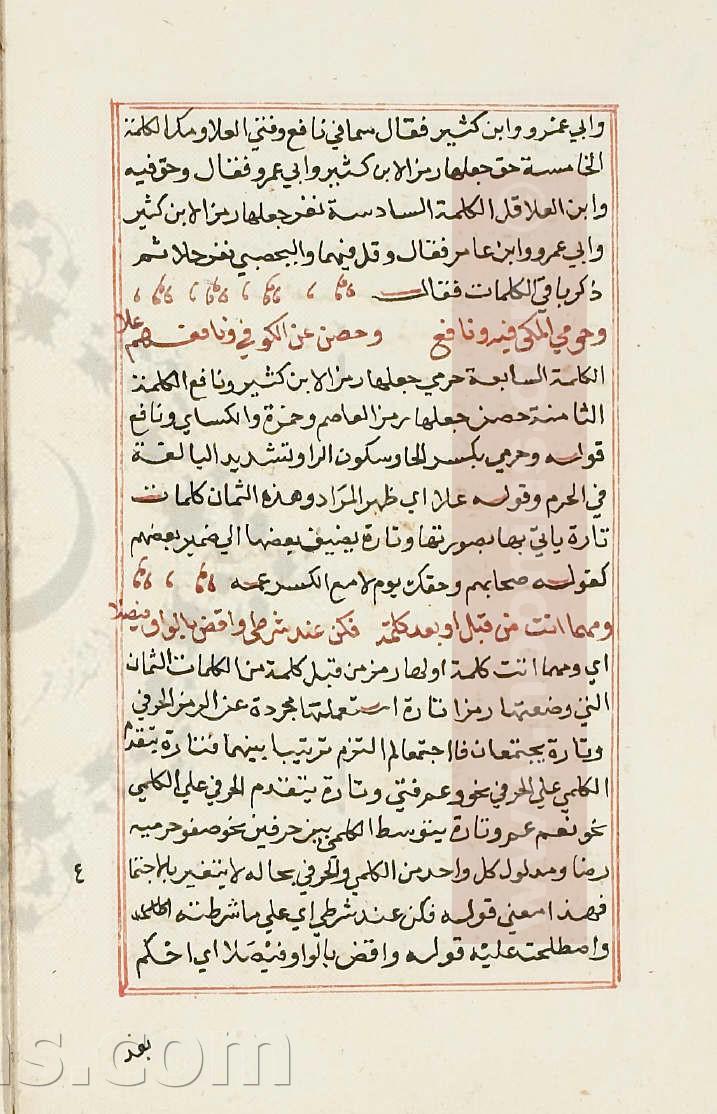 وابي عمرو وابن كثير فقال سما في نافع وفتي العلا ومك الكلمة
الخامسة حق جعلها رمز الابن كثير وابي عمرو فقال وحق فيه
وابن العلا قل الكلمة السادسة نفر جعلها رمز الابن كثير
وابي عمرو وابن عامر فقال وقل فيهما واليحصبي نفر حلا ثم
ذكر باقي الكلمات فقال
وحرمي المكي فيه ونافع وحصن عن الكوفي ونافعهم علا
الكلمة السابعة حرمي جعلها رمز الابن كثير ونافع الكلمة
الثامنة حصن جعلها رمز العاصم وحمزة والكساي ونافع
قوله وحرمي بكسر الحا وسكون الرا وتشديد اليا لغة
في الحرم وقوله علا اي ظهر المراد وهذه الثمان كلمات
تارة ياتي بها بصورتها وتارة يضيف بعضها الي ضمير بعضهم
كقوله صحابهم وحقك يوم لا مع الكسر عمه
ومهما اتت من قبل او بعد كلمة فكن عند شرطي واقض بالواو فيصلا
اي ومهما اتت كلمة اولها رمز من قبل كلمة من الكلمات الثمان
التي وضعتها رمزا تارة استعملتها مجردة عن الرمز الحرفي
وتارة يجتمعان فاذا اجتمعا لم التزم ترتيبا بينهما فتارة يتقدم
الكلمي علي الحرفي نحو وعم فتي وتارة يتقدم الحرفي علي الكلمي
نحو نعم عم وتارة يتوسط الكلمي بين حرفين نحو صفو حرميه
رضا ومدلول كل واحد من الكلمي والحرفي بحاله لا يتغير بالاجتما
ع
فهذا معني قوله فكن عند شرطي اي علي ما شرطته
واصطلحت عليه قوله واقض بالواو فيصلا اي احكم
بعد
ns.com